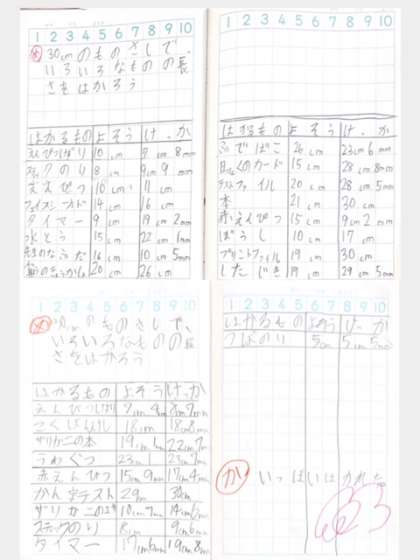 1 2 3 4 5 6 7 8 9 10
め 30cmのものさしで、
いろいろなものの長
さをはかろう
はかるもの よそう けっか
えんぴつけずり 10cm 9cm 8mm
スティックのり 8cm 9cm 9mm
えんぴつ 10cm 11cm
フェイスシールド 14cm 16cm
タイマー 9cm 19cm 2mm
水とう 15cm 22cm 1mm
16cm 10cm 5mm
20cm 26cm
1 2 3 4 5 6 7 8 9 10
はかるもの よそう けっか
ふでばこ 26cm 23cm 6mm
カード 15cm 28cm 8mm
テストファイル 20cm 28cm 5mm
本 21cm 30cm
赤えんぴつ 15cm 9cm 2mm
ぼうし 10cm 17cm
プリントファイル 19cm 30cm
したじき 19cm 29cm 5mm
1 2 3 4 5 6 7 8 9 10
め 30cmのものさしで、
いろいろなものの長
さをはかろう
はかるもの よそう けっか
えんぴつけずり
こくばんけし 18cm 18cm 8mm
ザリガニの本
うわぐつ 23cm
赤えんぴつ 15cm 9mm 17cm 4mm
かん字テスト 29cm 30cm
10cm 7mm 14cm 6mm
スティックのり 8cm 9cm 6mm
タイマー 17cm 6mm 19cm 8mm
1 2 3 4 5 6 7 8 9 10
はかるもの よそう けっか
つぼのり 5cm 5cm 5mm
か いっぱいはかれた。